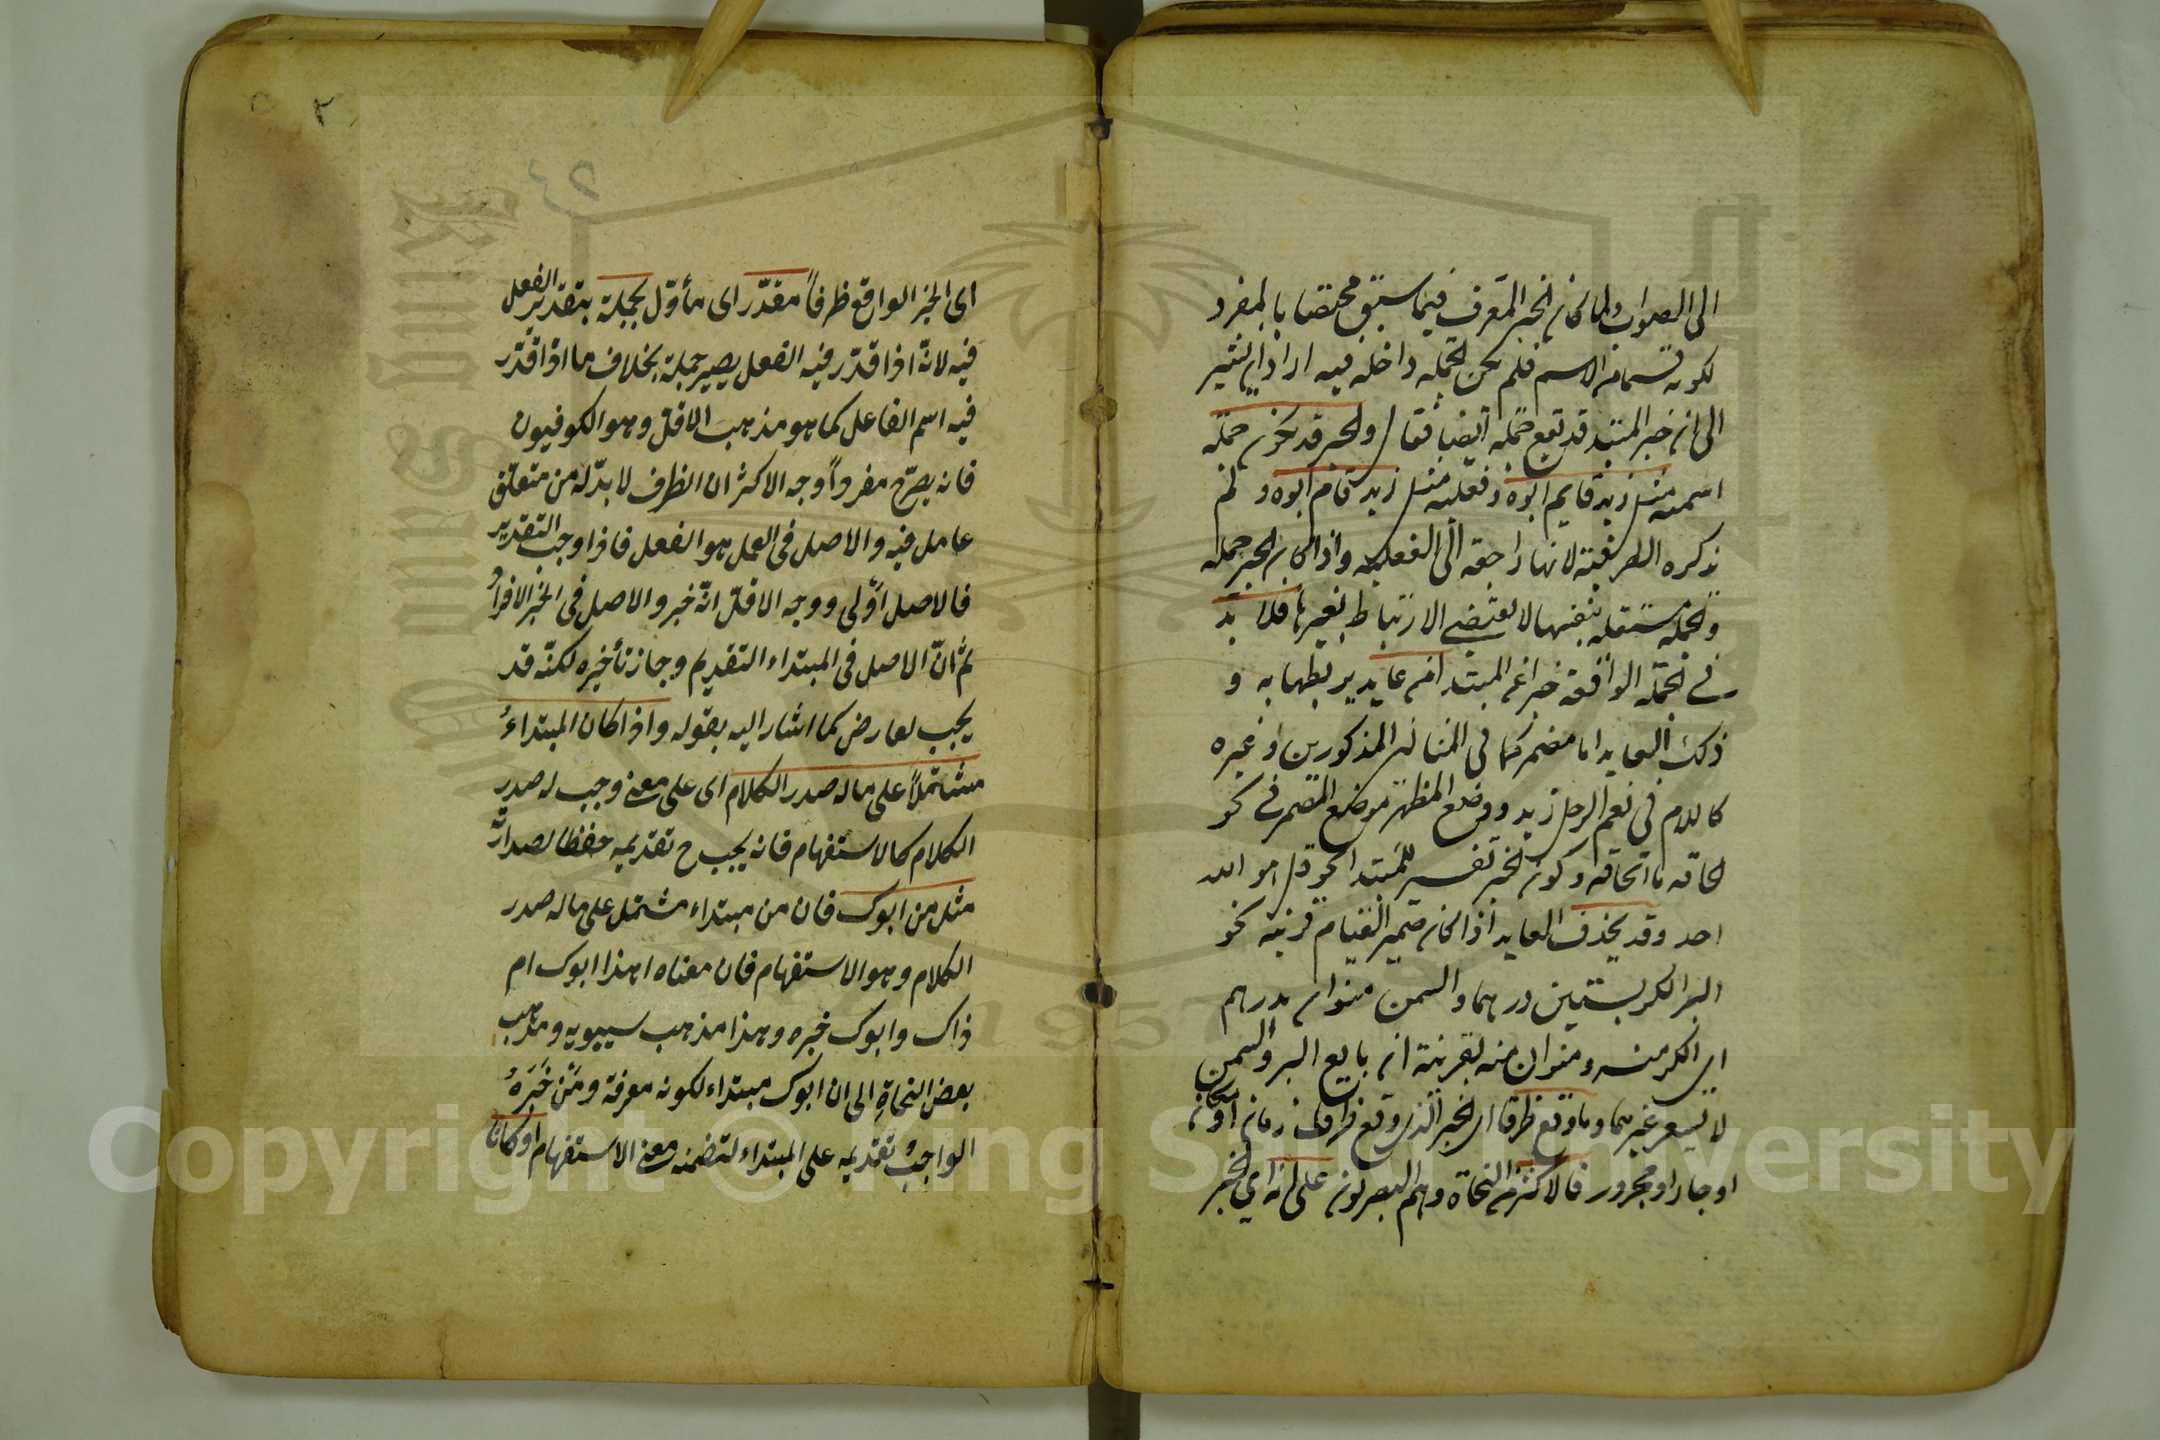 الى الصواب ولما كان الخبر المعرف فيما سبق مختصا بالمفرد
لكونه قسما من الاسم فلم يكن الجملة داخلة فيه اراد ان يشير
الى ان خبر المبتدا قد تقع جملة ايضا فقال والخبر قد يكون جملة
اسمية مثل زيد قايم ابوه وفعلية مثل زيد قام ابوه ولم
يذكره الظرفية لانها راجعة الى الفعلية واذا كان الخبر جملة
والجملة مستقلة بنفسها لا يقتضى الارتباط بغيرها فلا بد
في الجملة الواقعة خبرا عن المبتدا من عايد يربطها به و
ذلك العايد اما ضمير كما في المثالين المذكورين او غيره
كاللام في نعم الرجل زيد ووضع المظهر موضع المضمر في نحو
الحاقة ما الحاقة وكون الخبر تفسيرا للمبتدا نحو قل هو الله
احد وقد يحذف العايد اذا كان ضمير القيام قرينة نحو
البر الكر بستين درهما والسمن منوان بدرهم
اى الكر منه ومنوان منه بقرينة ان بايع البر والسمن
لا يسعر غيرهما وما وقع ظرفا اى الخبر الذى وقع ظرف زمان او مكان
او جارا ومجرور فالاكثر من النحاة وهم البصريون على انه اي الخبر
٢
٢٤
اى الخبر الواقع ظرفاً مقدّر اى مأوّل بجملة بتقدير الفعل
فيه لانّه اذا قدّر فيه الفعل يصير جملة بخلاف ما اذا قدّر
فيه اسم الفاعل كما هو مذهب الاقلّ وهو الكوفيون
فانه يصرّح مفرداً وجه الاكثر ان الظرف لا بدّ له من متعلّق
عامل فيه والاصل فى العمل هو الفعل فاذا وجب التقدير
فالاصل اَوْلى ووجه الاقلّ انّه خبر والاصل فى الخبر الافرادُ
ثم انّ الاصل فى المبتداء التقديم وجاز تأخيره لكنّه قد
يجب لعارض كما اشار اليه بقوله واذا كان المبتداءُ
مشتملاً على ما له صدر الكلام اى على معنى وجب له صدر
الكلام كالاستفهام فانه يجب ح تقديمه حفظا لصدارته
مثل من ابوك فان من مبتداء مشتمل على ما له صدر
الكلام وهو الاستفهام فان معناه اهذا ابوك ام
ذاك وابوك خبره وهذا مذهب سيبويه ومذهب
بعض النحاةِ الى ان ابوك مبتداء لكونه معرفة ومَنْ خَبَرَهُ
الواجبُ تقديمه على المبتداء لتضمنه معنى الاستفهام او كانا
Copyright © King Saud University
King Saud University
1957